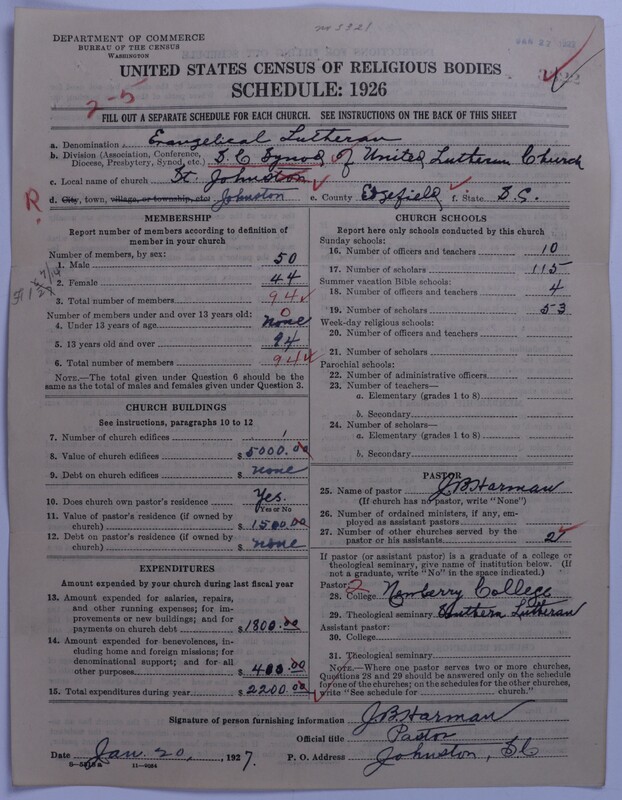 DEPARTMENT OF COMMERCE
BUREAU OF THE CENSUS
WASHINGTON
UNITED STATES CENSUS OF RELIGIOUS BODIES
SCHEDULE: 1926
2-5
FILL OUT A SEPARATE SCHEDULE FOR EACH CHURCH. SEE INSTRUCTIONS ON THE BACK OF THIS SHEET
a. Denomination Evangelical Lutheran
b. Division (Association, Conference, Diocese, Presbytery, Synod, etc.) S.C Synod of United Lutheran Church
c. Local name of church St. Johnston
R. d. City, town, village, or township, etc Johnston e. County Edgefield f. State S.C.
MEMBERSHIP
Report number of members according to definition of
member in your church
Number of members, by sex:
1. Male 50
2. Female 44
3. Total number of members 94
Number of members under and over 13 years old:
4. Under 13 years of age none 0
5. 13 years old and over 94
6. Total number of members 94
NOTE.—The total given under Question 6 should be
same as the total of males and females given under Question 3.
CHURCH BUILDINGS
See instructions, paragraphs 10 to 12
7. Number of church edifices 1
8. Value of church edifices $ 5000.00
9. Debt on church edifices $ none
10. Does church own pastor's residence Yes.
(Yes or No)
11. Value of pastor's residence (if owned by
church) $ 1500.00
12. Debt on pastor's residence (if owned by
church) $ none
EXPENDITURES
Amount expended by your church during last fiscal year
13. Amount expended for salaries, repairs,
and other running expenses; for im-
provements or new buildings; and for
payments on church debt $ 1800.00
14. Amount expended for benevolences, in-
cluding home and foreign missions; for
denominational support; and for all
other purposes $ 400.00
15. Total expenditures during year $ 2200.00
CHURCH SCHOOLS
Report here only schools conducted by this church
Sunday schools:
16. Number of officers and teachers 10
17. Number of scholars 115
Summer vacation Bible schools:
18. Number of officers and teachers 4
19. Number of scholars 53
Week-day religious schools:
20. Number of officers and teachers
21. Number of scholars
Parochial schools:
22. Number of administrative officers
23. Number of teachers—
a. Elementary (grades 1 to 8)
b. Secondary
24. Number of scholars—
a. Elementary (grades 1 to 8)
b. Secondary
PASTOR
25. Name of pastor J.B. Harman
(If church has no pastor, write "None")
26. Number of ordained ministers, if any, em-
ployed as assistant pastors
27. Number of other churches served by the
pastor or his assistants 2
If pastor (or assistant pastor) is a graduate of a college or
theological seminary, give name of institution below. (If
not a graduate, write "No" in the space indicated.)
Pastor:
28. College Newberry College
29. Theological seminary Southern Lutheran
Assistant pastor:
30. College
31. Theological seminary
NOTE.—Where one pastor serves two or more churches,
Questions 28 and 29 should be answered only on the schedule
for one of the churches; on the schedules for the other churches,
write "See schedule for church."
Signature of person furnishing information J.B. Harman
Official title Pastor
Date Jan. 20, 1927. P. O. Address Johnston, S.C
11-9984